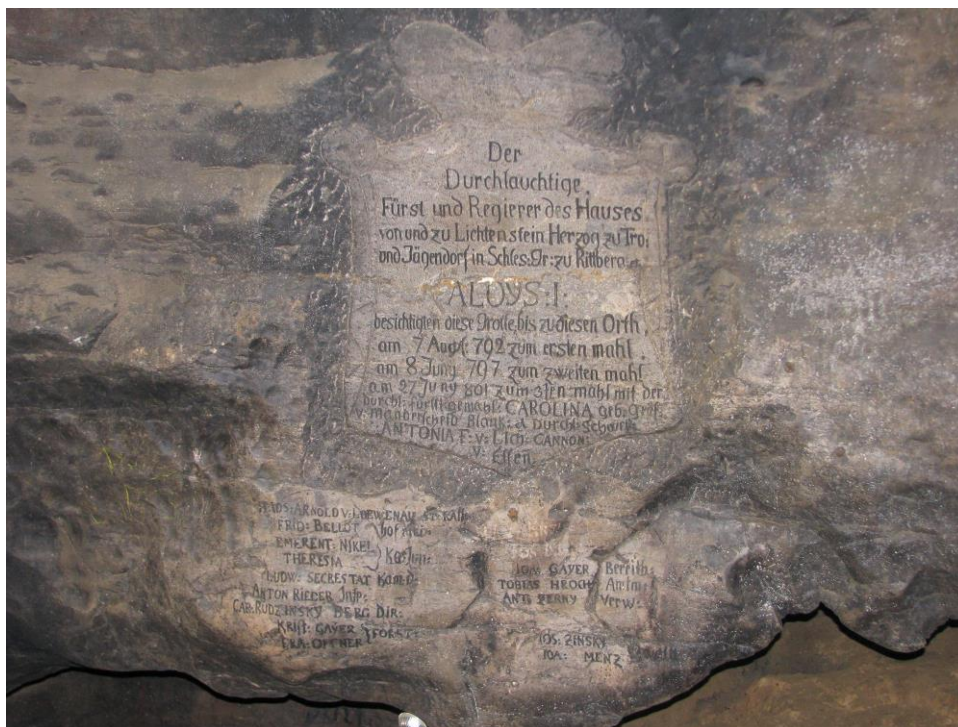 Der
Durchlauchtige,
Fürst und Regierer des Hauses
von und zu Lichtenstein Herzog zu Tro:
und Jägendorf in Schles: Gr: zu Rittberg
ALOYS: I:
besichtigten diese Grotte, bis zu diesen Orth,
am 7 August: 792 zum ersten mahl
am 8 Juny 797 zum zweiten mahl
am 27 Juny 801 zum 3ten mahl mit der
durchl: fürstl: gemahl: CAROLINA geb: gräf:
v: manderscheid Blank: d Durchl: schwest:
ANTONIA F: v: Lich: CANNON:
v: Essen.
ARNOLD v: LOEWENAU ST: Rath
FRID: BELLOT hof
EMERENT: NIKEL
THERESIA Kam̄ Jun:
LUDW: SECRESTAT Kam̄ D:
ANTON RIEDER Insp:
CAR: RUDZINSKY BERG DIR:
Krist: GAYER FORST:
FRA: OPPHER
JOS
IOH: GAYER Bereith:
TOBIAS HROCH Amtm:
ANT: PERNY Verw:
IOS: ZINSKY
IOA: MENZ